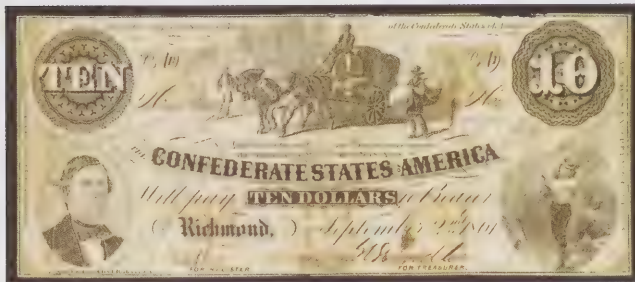 of the Confederate States of
TEN
10
No.
No.
THE CONFEDERATE STATES AMERICA
Will pay TEN DOLLARS to Bearer
Richmond, September 2nd, 1861
FOR REGISTER
FOR TREASURER.